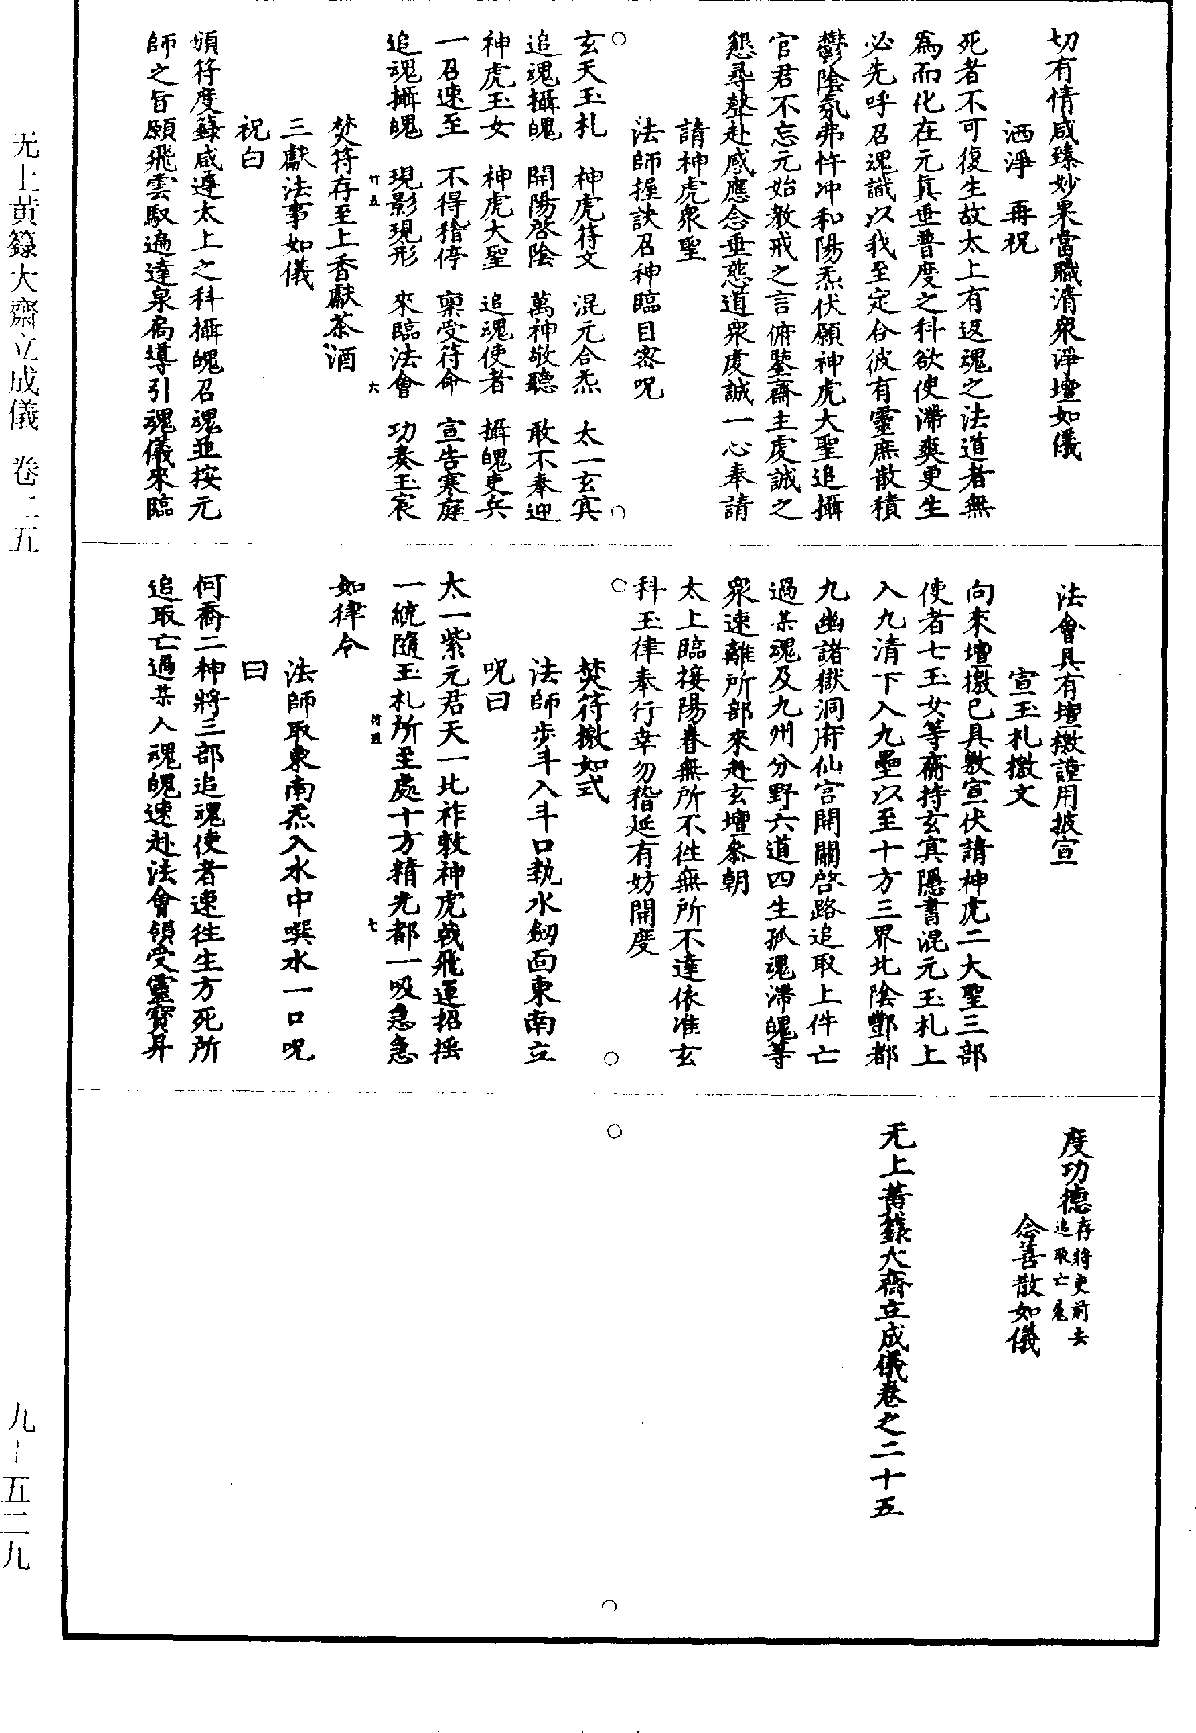 切有情咸臻妙果當職清衆淨壇如儀
洒淨　再祝
死者不可復生故太上有返魂之法道者無
爲而化在元眞垂普度之科欲使滯爽更生
必先呼召魂識以我至定合彼有靈庶散積
鬱陰氛弗忤冲和陽炁伏願神虎大聖追攝
官君不忘元始教戒之言俯鑒齋主虔誠之
懇尋聲赴感應念垂慈道衆虔誠一心奉請
請神虎衆聖
法師握訣召神臨目密呪
玄天玉札　神虎符文　混元合炁　太一玄冥
追魂攝魄　開陽啓陰　萬神敬聽　敢不奉迎
神虎玉女　神虎大聖　追魂使者　攝魄吏兵
一召速至　不得稽停　稟受符命　宣告寒庭
追魂攝魄　現影現形　來臨法會　功奏玉宸
竹五　六
焚符存至上香獻茶酒
三獻法事如儀
祝白
頒符度籙咸遵太上之科攝魄召魂並按元
師之旨願飛雲馭遍達泉扃導引魂儀來臨
法會具有壇檄謹用披宣
宣玉札檄文
向來壇檄已具敷宣伏請神虎二大聖三部
使者七玉女等齋持玄冥隱書混元玉札上
入九清下入九壘以至十方三界北陰酆都
九幽諸獄洞府仙宫開關啓路追取上件亡
過某魂及九州分野六道四生孤魂滯魄等
衆速離所部來赴玄壇叅朝
太上臨接陽眷無所不徃無所不達依准玄
科玉律奉行幸勿稽延有妨開度
焚符檄如式
法師步斗入斗口執水劒面東南立
呪曰
太一紫元君天一比祚敕神虎戟飛運招搖
一統隨玉札所至處十方精光都一吸急急
七
如律令
法師取東南炁入水中噀水一口呪
曰
何喬二神將三部追魂使者速徃生方死所
追取亡過某人魂魄速赴法會領受靈寶昇
度功德存將吏前去追取亡魂
念善散如儀
无上黃籙大齋立成儀卷之二十五
无上黄籙大齋立成儀　卷二五
九—五二九